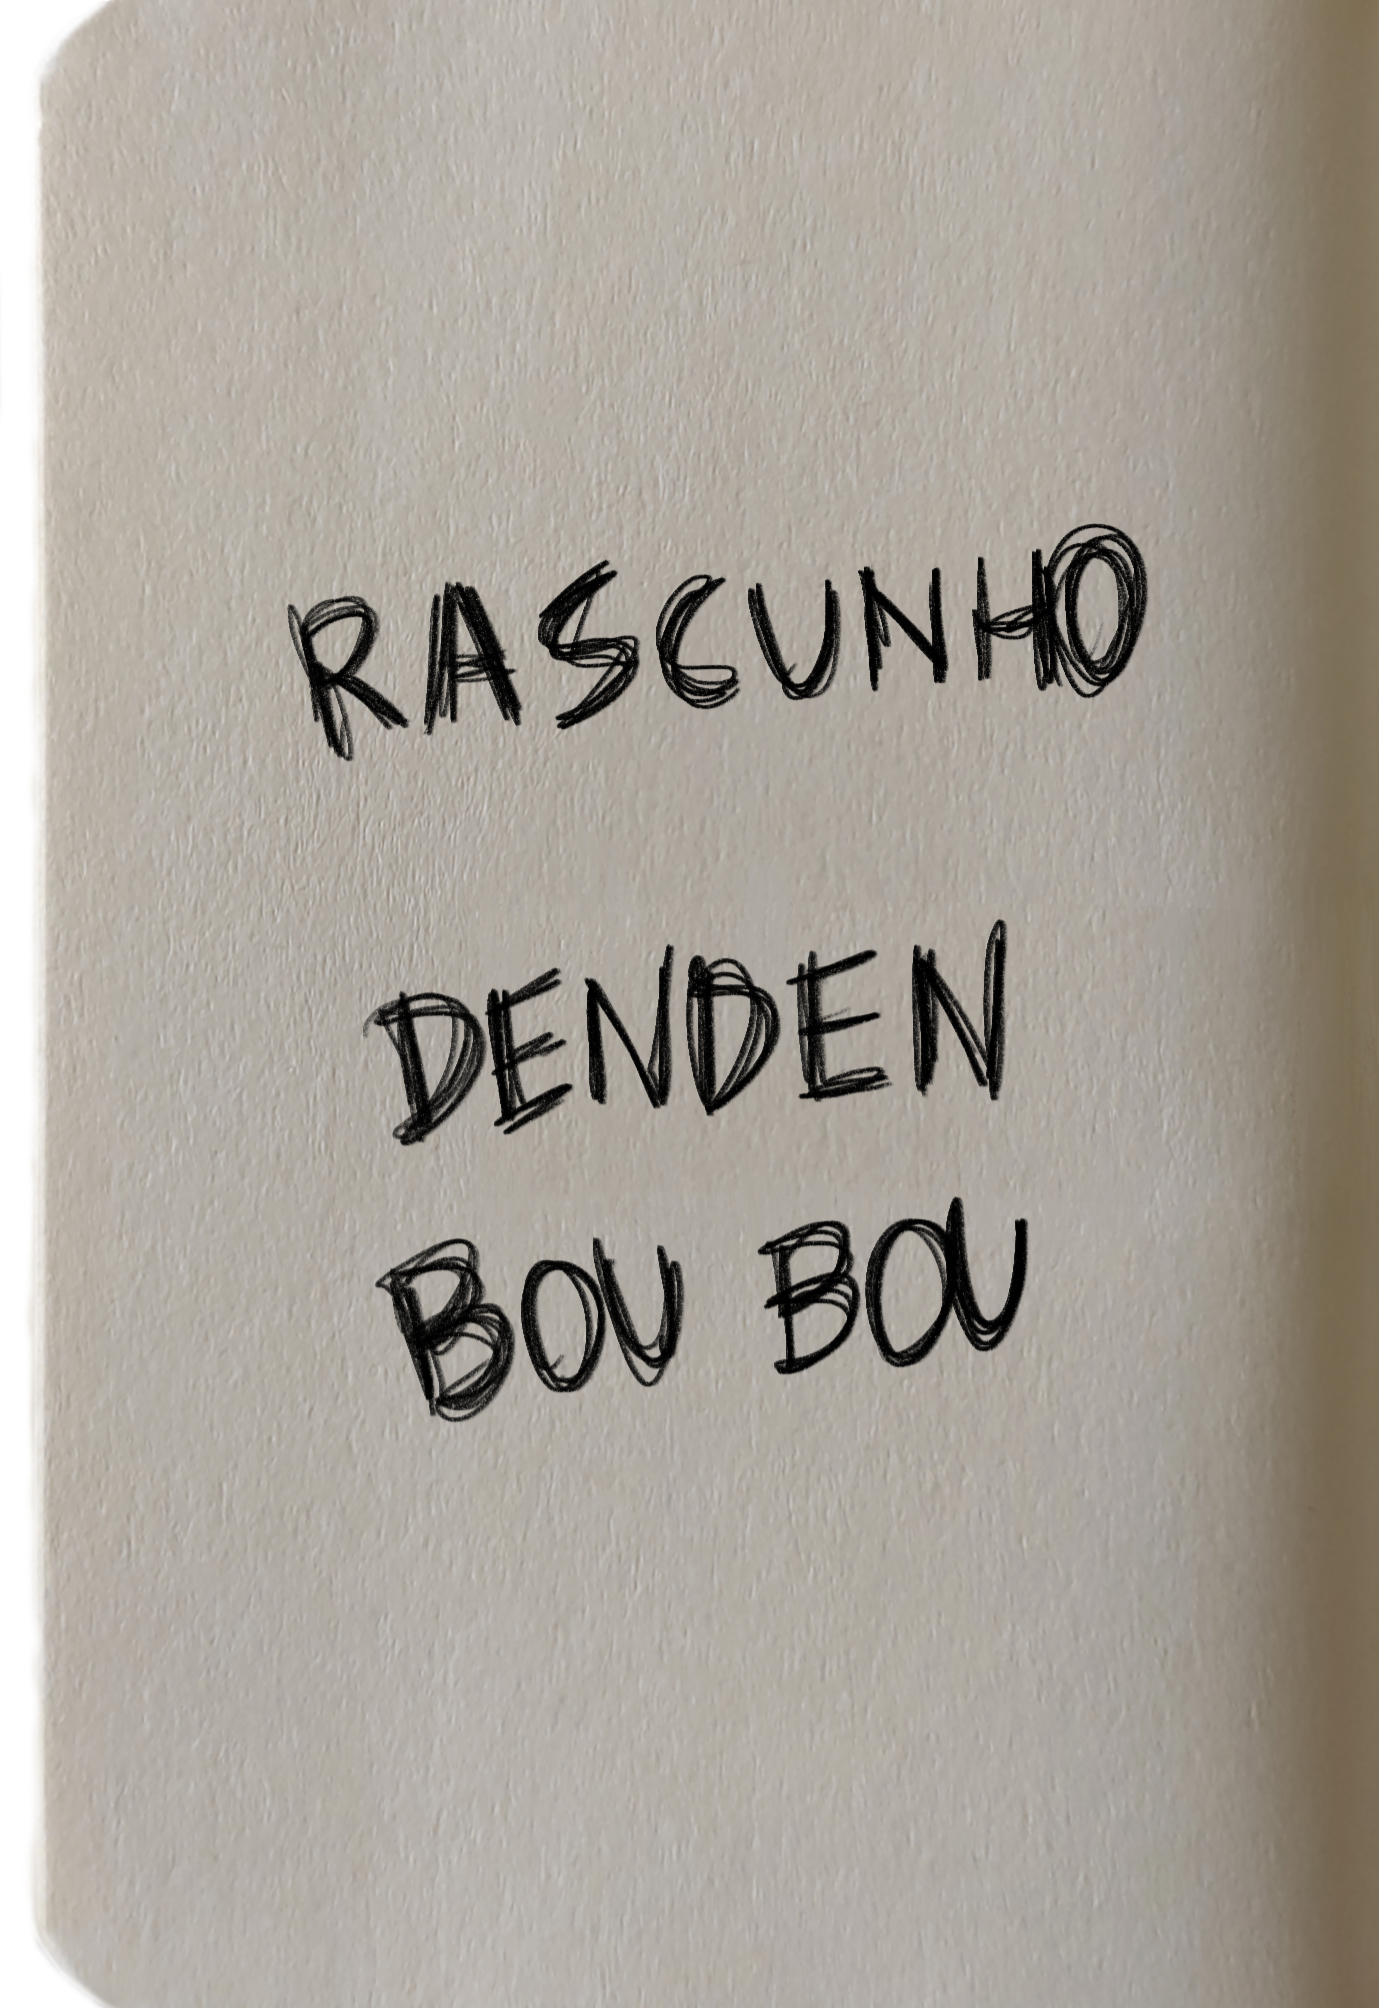 RASCUNHO
DENDEN
BOU BOU